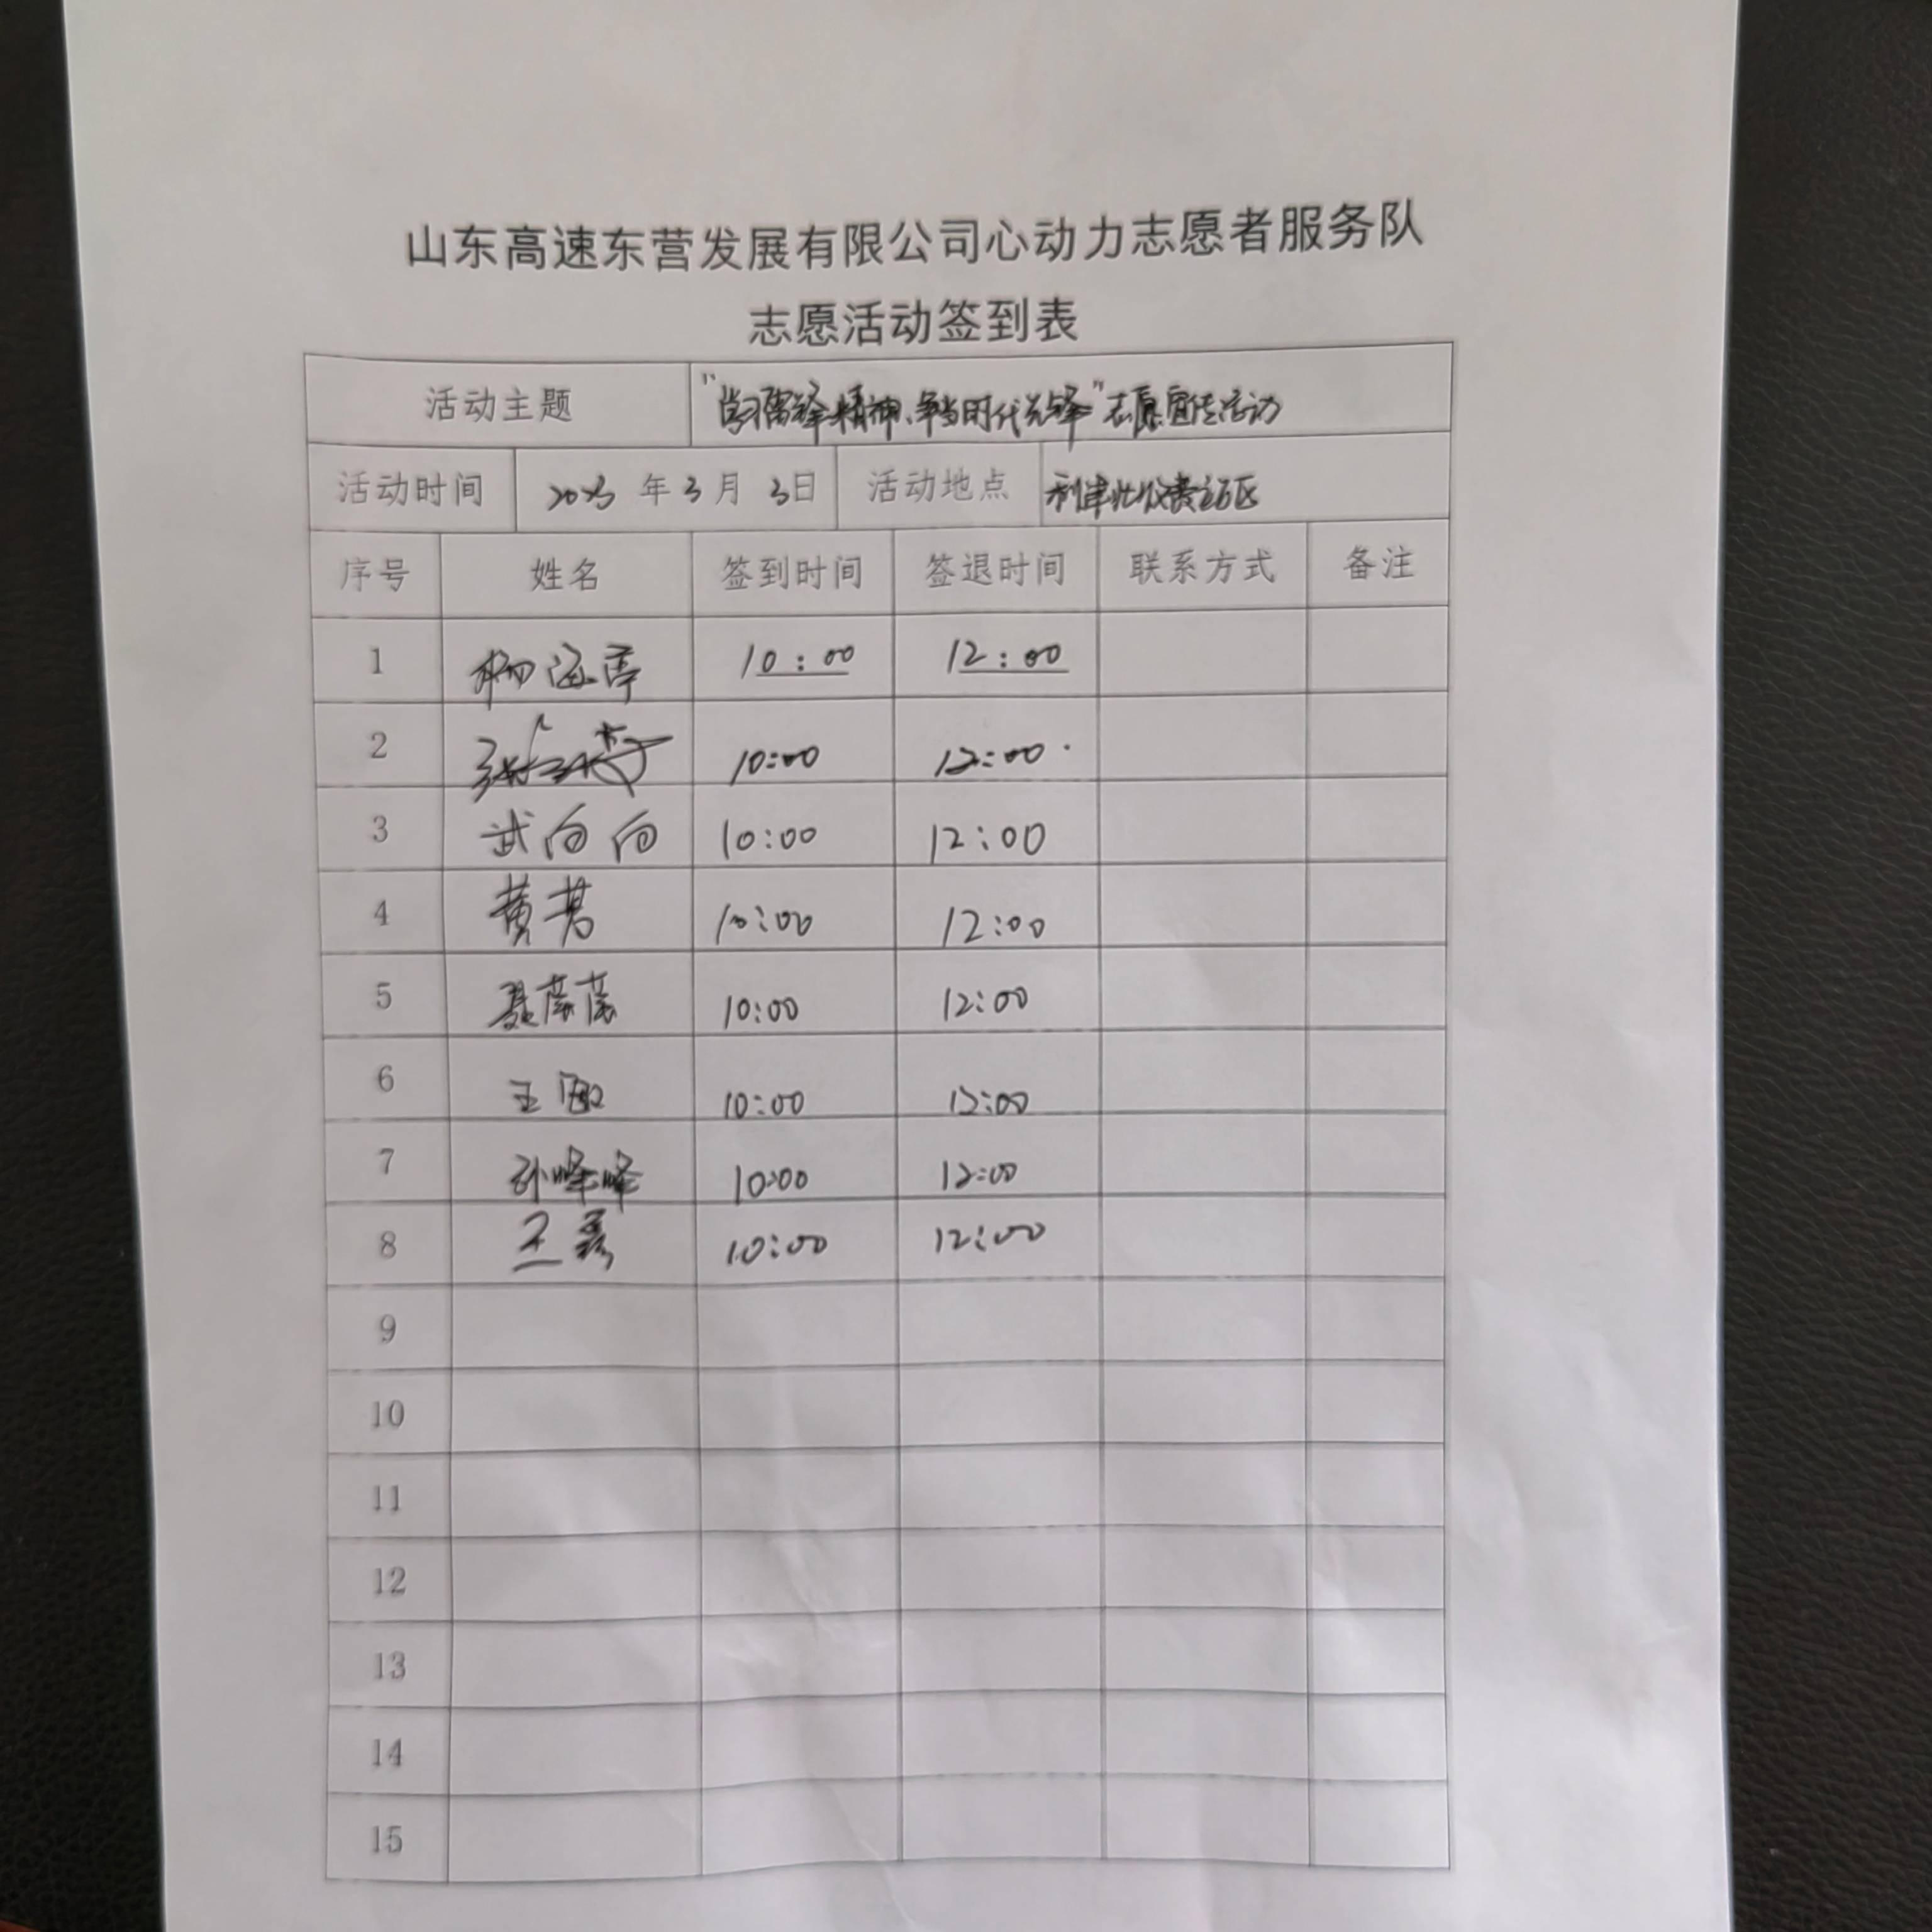 山东高速东营发展有限公司心动力志愿者服务队
志愿活动签到表
活动主题 “学习雷锋精神、争当时代先锋”志愿宣传活动
活动时间 2023 年 3 月 3日 活动地点 利津北收费站区
序号 姓名 签到时间 签退时间 联系方式 备注
1 杨海亭 10:00 12:00
2 10:00 12:00
3 武向向 10:00 12:00
4 黄君 10:00 12:00
5 聂蒙蒙 10:00 12:00
6 王 10:00 12:00
7 孙峰峰 10:00 12:00
8 王 10:00 12:00
9
10
11
12
13
14
15